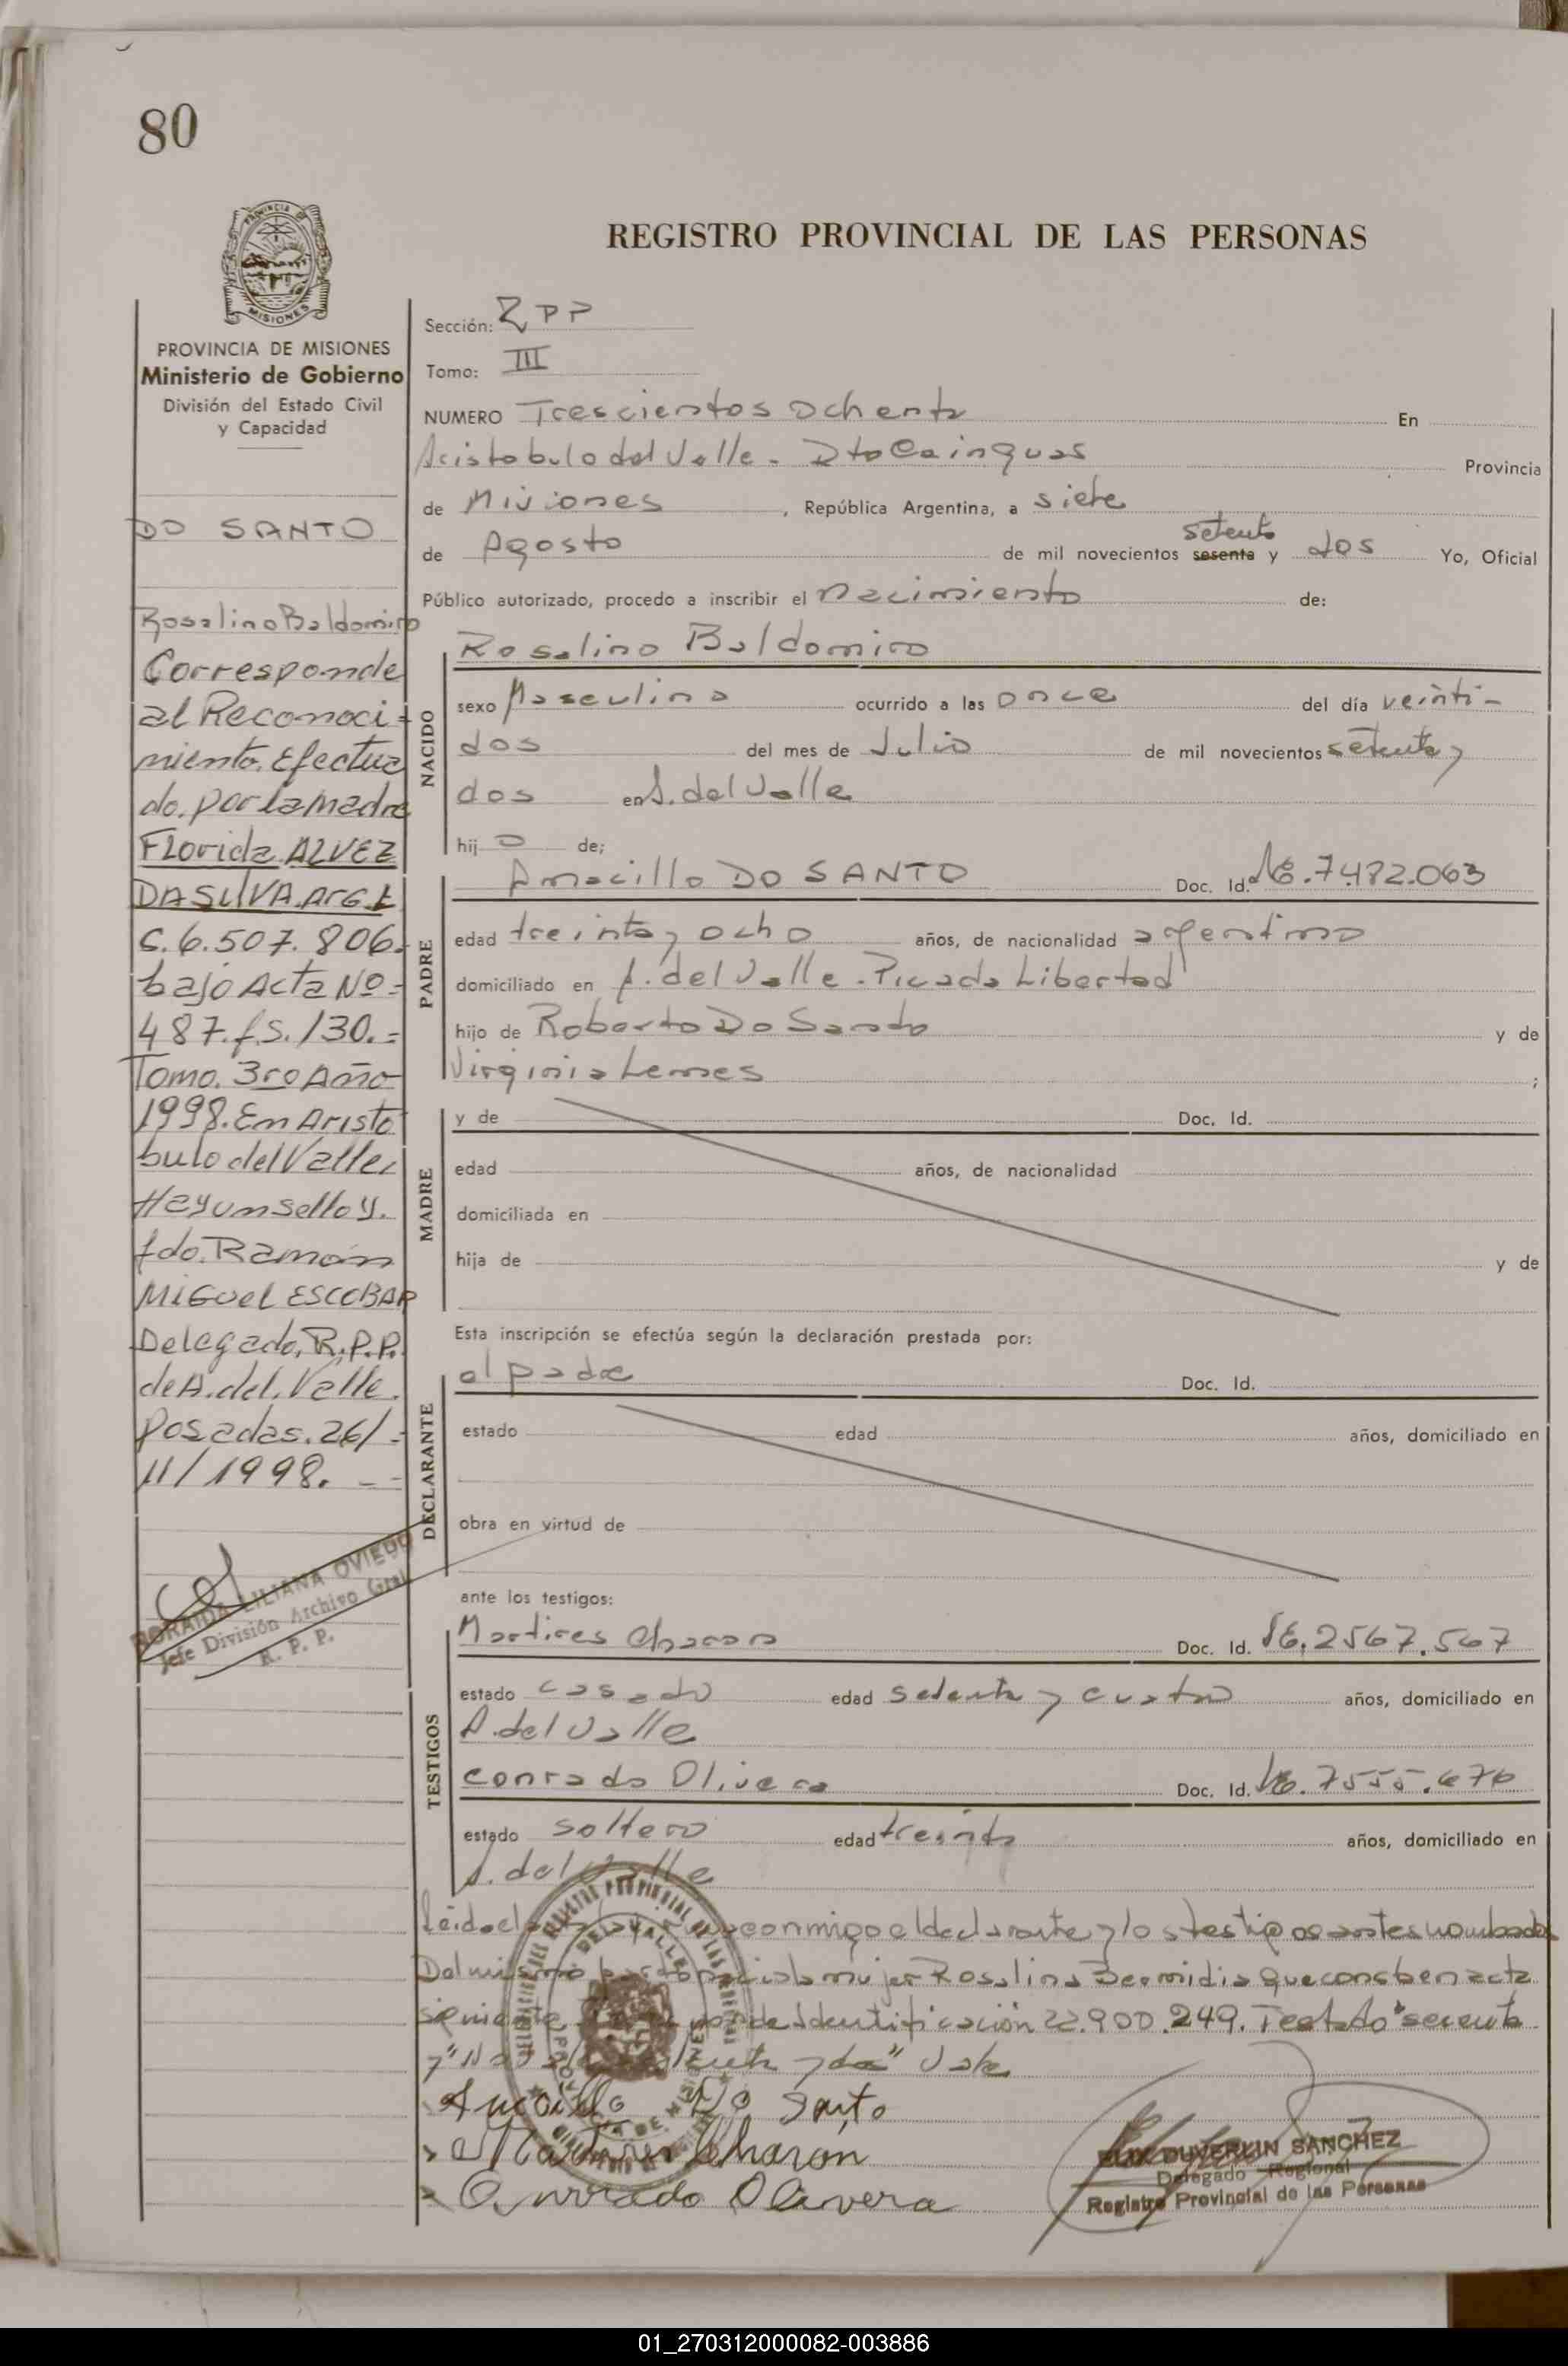 80
REGISTRO PROVINCIAL DE LAS PERSONAS
PROVINCIA DE MISIONES
Ministerio de Gobierno
División del Estado Civil
y Capacidad
DO SANTO
Rosalino Baldomiro
Corresponde
al Reconoci-
miento. Efectua
do. por la madre
Florida ALVEZ
DA SILVA. Arg.
C. 6.507.806.
bajo Acta Nº=
487. fs. 130.=
Tomo. 3ro Año
1998. En Aristo
bulo del Valle,
Hay un sello y.
fdo. Ramón
MiGuel ESCOBAR
Delegado, R.P.P.
de A. del. Valle.
Posadas. 26/-
11/1998. --
LILIANA OVIEDO
Jefe División Archivo Gral.
R. P. P.
Sección: RPP
Tomo: III
NUMERO Trescientos ochenta En
Aristobulo del Valle - Dto Cainguas Provincia
de Misiones, República Argentina, a siete
de Agosto de mil novecientos sesenta setenta y dos Yo, Oficial
Público autorizado, procedo a inscribir el nacimiento de:
NACIDO
Rosalino Baldomiro
sexo Masculino ocurrido a las once del día veinti-
dos del mes de Julio de mil novecientos setenta y
dos en A. del Valle
hijo de;
PADRE
Amacillo DO SANTO Doc. Id. 7.482.063
edad treinta y ocho años, de nacionalidad argentino
domiciliado en A. del Valle. Picada Libertad
hijo de Roberto Do Santo y de
Virginia Lemes ;
MADRE
y de Doc. Id.
edad años, de nacionalidad
domiciliada en
hija de y de
Esta inscripción se efectúa según la declaración prestada por:
DECLARANTE
el padre Doc. Id.
estado edad años, domiciliado en
obra en virtud de
ante los testigos:
TESTIGOS
Martires Charon Doc. Id. 2567.567
estado casado edad setenta y cuatro años, domiciliado en
A. del Valle
Conrado Olivera Doc. Id. 7555.676
estado soltero edad treinta años, domiciliado en
A. del Valle
Leido el acta conmigo el declarante y los testigos antes nombrados
Del mismo parto nacio la mujer Rosalina Bermidia que consta en acta
siguiente de Identificación 22.900.249. Testado "sesenta
y" dos" Vale
Do Santo
Martires Charon
Conrado Olivera
DUVERLIN SANCHEZ
Delegado Regional
Registro Provincial de las Personas
01_270312000082-003886